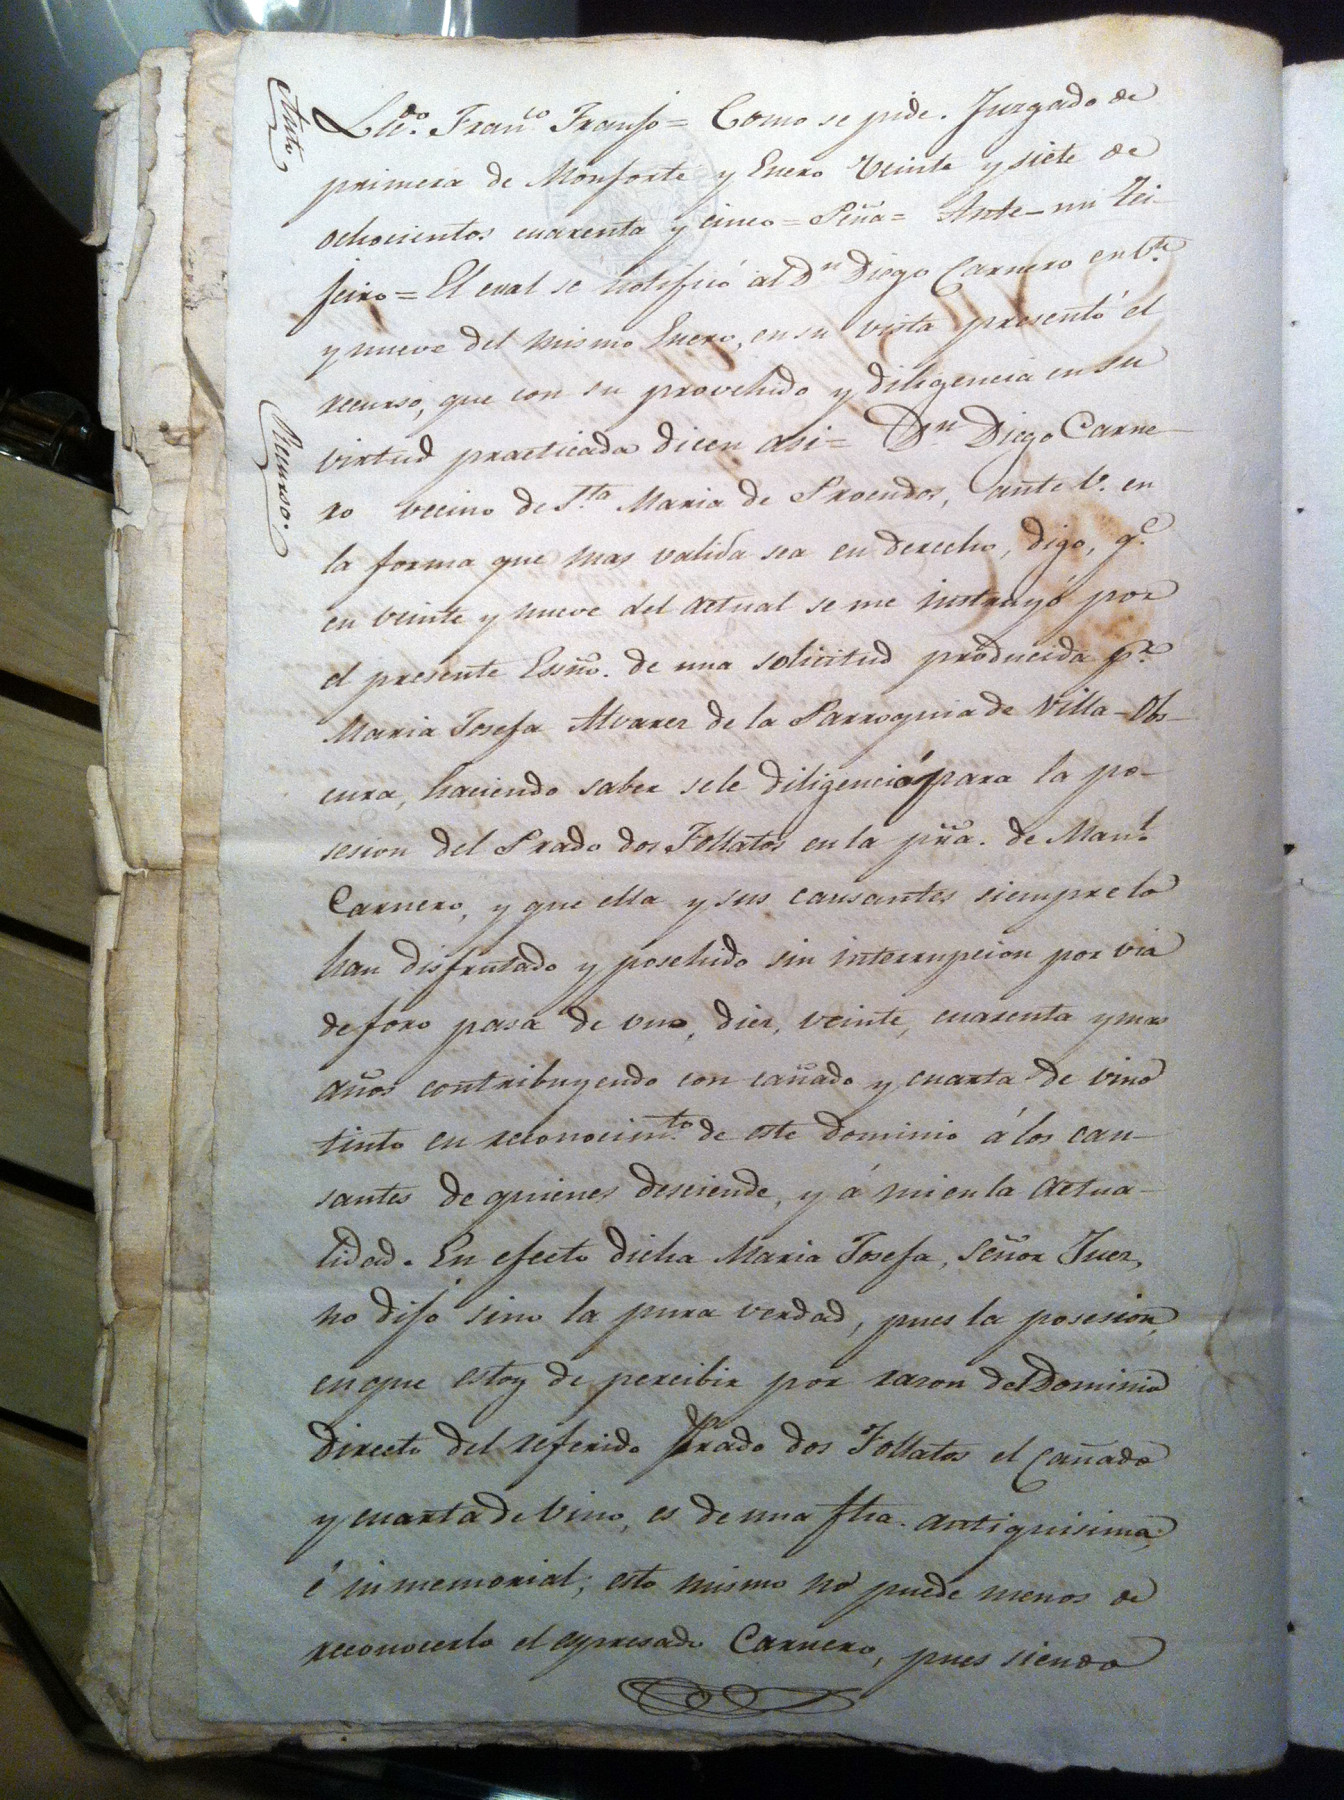 Auto
Licdo. Franco. Franjo = Como se pide. Juzgado de
primera de Monforte y Enero Veinte y siete de
ochocientos cuarenta y cinco = Peña = Ante-mi Tei-
jeiro = El cual se notificó al Dn Diego Carnero en Vte
y nueve del mismo Enero, en su vista presentó el
Recurso.
recurso, que con su provehido y diligencia en su
virtud practicada dicen asi = Dn Diego Carne-
ro vecino de Sta Maria de Proendos, ante V. en
la forma que mas valida sea en derecho, digo, qe
en veinte y nueve del actual se me instruyó por
el presente Essno. de una solicitud producida pr.
Maria Josefa Alvarez de la Parroquia de Villa-Obs-
cura, haciendo saber se le diligenció para la po-
sesion del Prado dos Follatos en la pña. de Manl.
Carnero, y que ella y sus causantes siempre lo
han disfrutado y posehido sin interrupcion por via
de foro pasa de uno, diez, veinte, cuarenta y mas
años contribuyendo con cañado y cuarta de vino
tinto en reconocimto. de este dominio á los cau-
santes de quienes desciende, y á mi en la actua-
lidad. En efecto dicha Maria Josefa, Señor Juez,
no dijo sino la pura verdad, pues la posesion,
en que estoy de percibir por razon del Dominio
directo del referido Prado dos Follatos el Cañado
y cuarta de Vino, es de una fha. antiquisima,
é inmemorial; esto mismo no puede menos de
reconocerlo el expresado Carnero, pues siendo